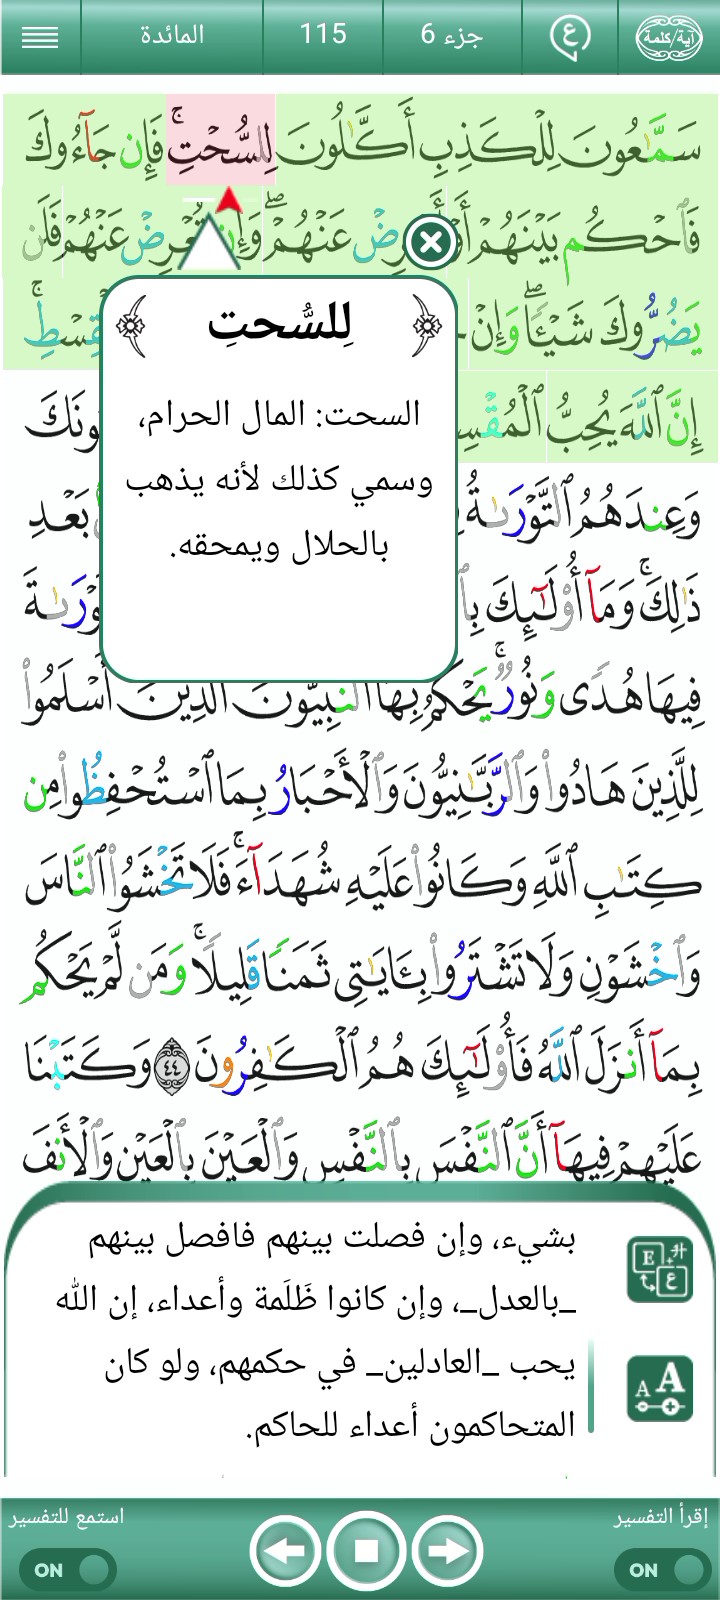 آية/كلمة
ع
جزء 6
115
المائدة
سَمَّٰعُونَ لِلْكَذِبِ أَكَّٰلُونَ لِلسُّحْتِ ۚ فَإِن جَآءُوكَ
فَٱحْكُم بَيْنَهُمْ عَنْهُمْ ۖ وَإِن تُعْرِضْ عَنْهُمْ فَلَن
يَضُرُّوكَ شَيْـًٔا ۖ وَإِنْ
إِنَّ ٱللَّهَ يُحِبُّ
لِلسُّحتِ
السحت: المال الحرام،
وسمي كذلك لأنه يذهب
بالحلال ويمحقه.
وَعِندَهُمُ ٱلتَّوْرَىٰةُ بَعْدِ
ذَٰلِكَ ۚ وَمَآ أُو۟لَـٰٓئِكَ
فِيهَا هُدًى وَنُورٌ ۚ يَحْكُمُ بِهَا ٱلنَّبِيُّونَ ٱلَّذِينَ أَسْلَمُوا۟
لِلَّذِينَ هَادُوا۟ وَٱلرَّبَّـٰنِيُّونَ وَٱلْأَحْبَارُ بِمَا ٱسْتُحْفِظُوا۟ مِن
كِتَـٰبِ ٱللَّهِ وَكَانُوا۟ عَلَيْهِ شُهَدَآءَ ۚ فَلَا تَخْشَوُا۟ ٱلنَّاسَ
وَٱخْشَوْنِ وَلَا تَشْتَرُوا۟ بِـَٔايَـٰتِى ثَمَنًا قَلِيلًا ۚ وَمَن لَّمْ يَحْكُم
بِمَآ أَنزَلَ ٱللَّهُ فَأُو۟لَـٰٓئِكَ هُمُ ٱلْكَـٰفِرُونَ ٤٤ وَكَتَبْنَا
عَلَيْهِمْ فِيهَآ أَنَّ ٱلنَّفْسَ بِٱلنَّفْسِ وَٱلْعَيْنَ بِٱلْعَيْنِ وَٱلْأَنفَ
بشيء، وإن فصلت بينهم فافصل بينهم
_بالعدل_، وإن كانوا ظَلَمة وأعداء، إن الله
يحب _العادلين_ في حكمهم، ولو كان
المتحاكمون أعداء للحاكم.
إقرأ التفسير
استمع للتفسير
ON
ON